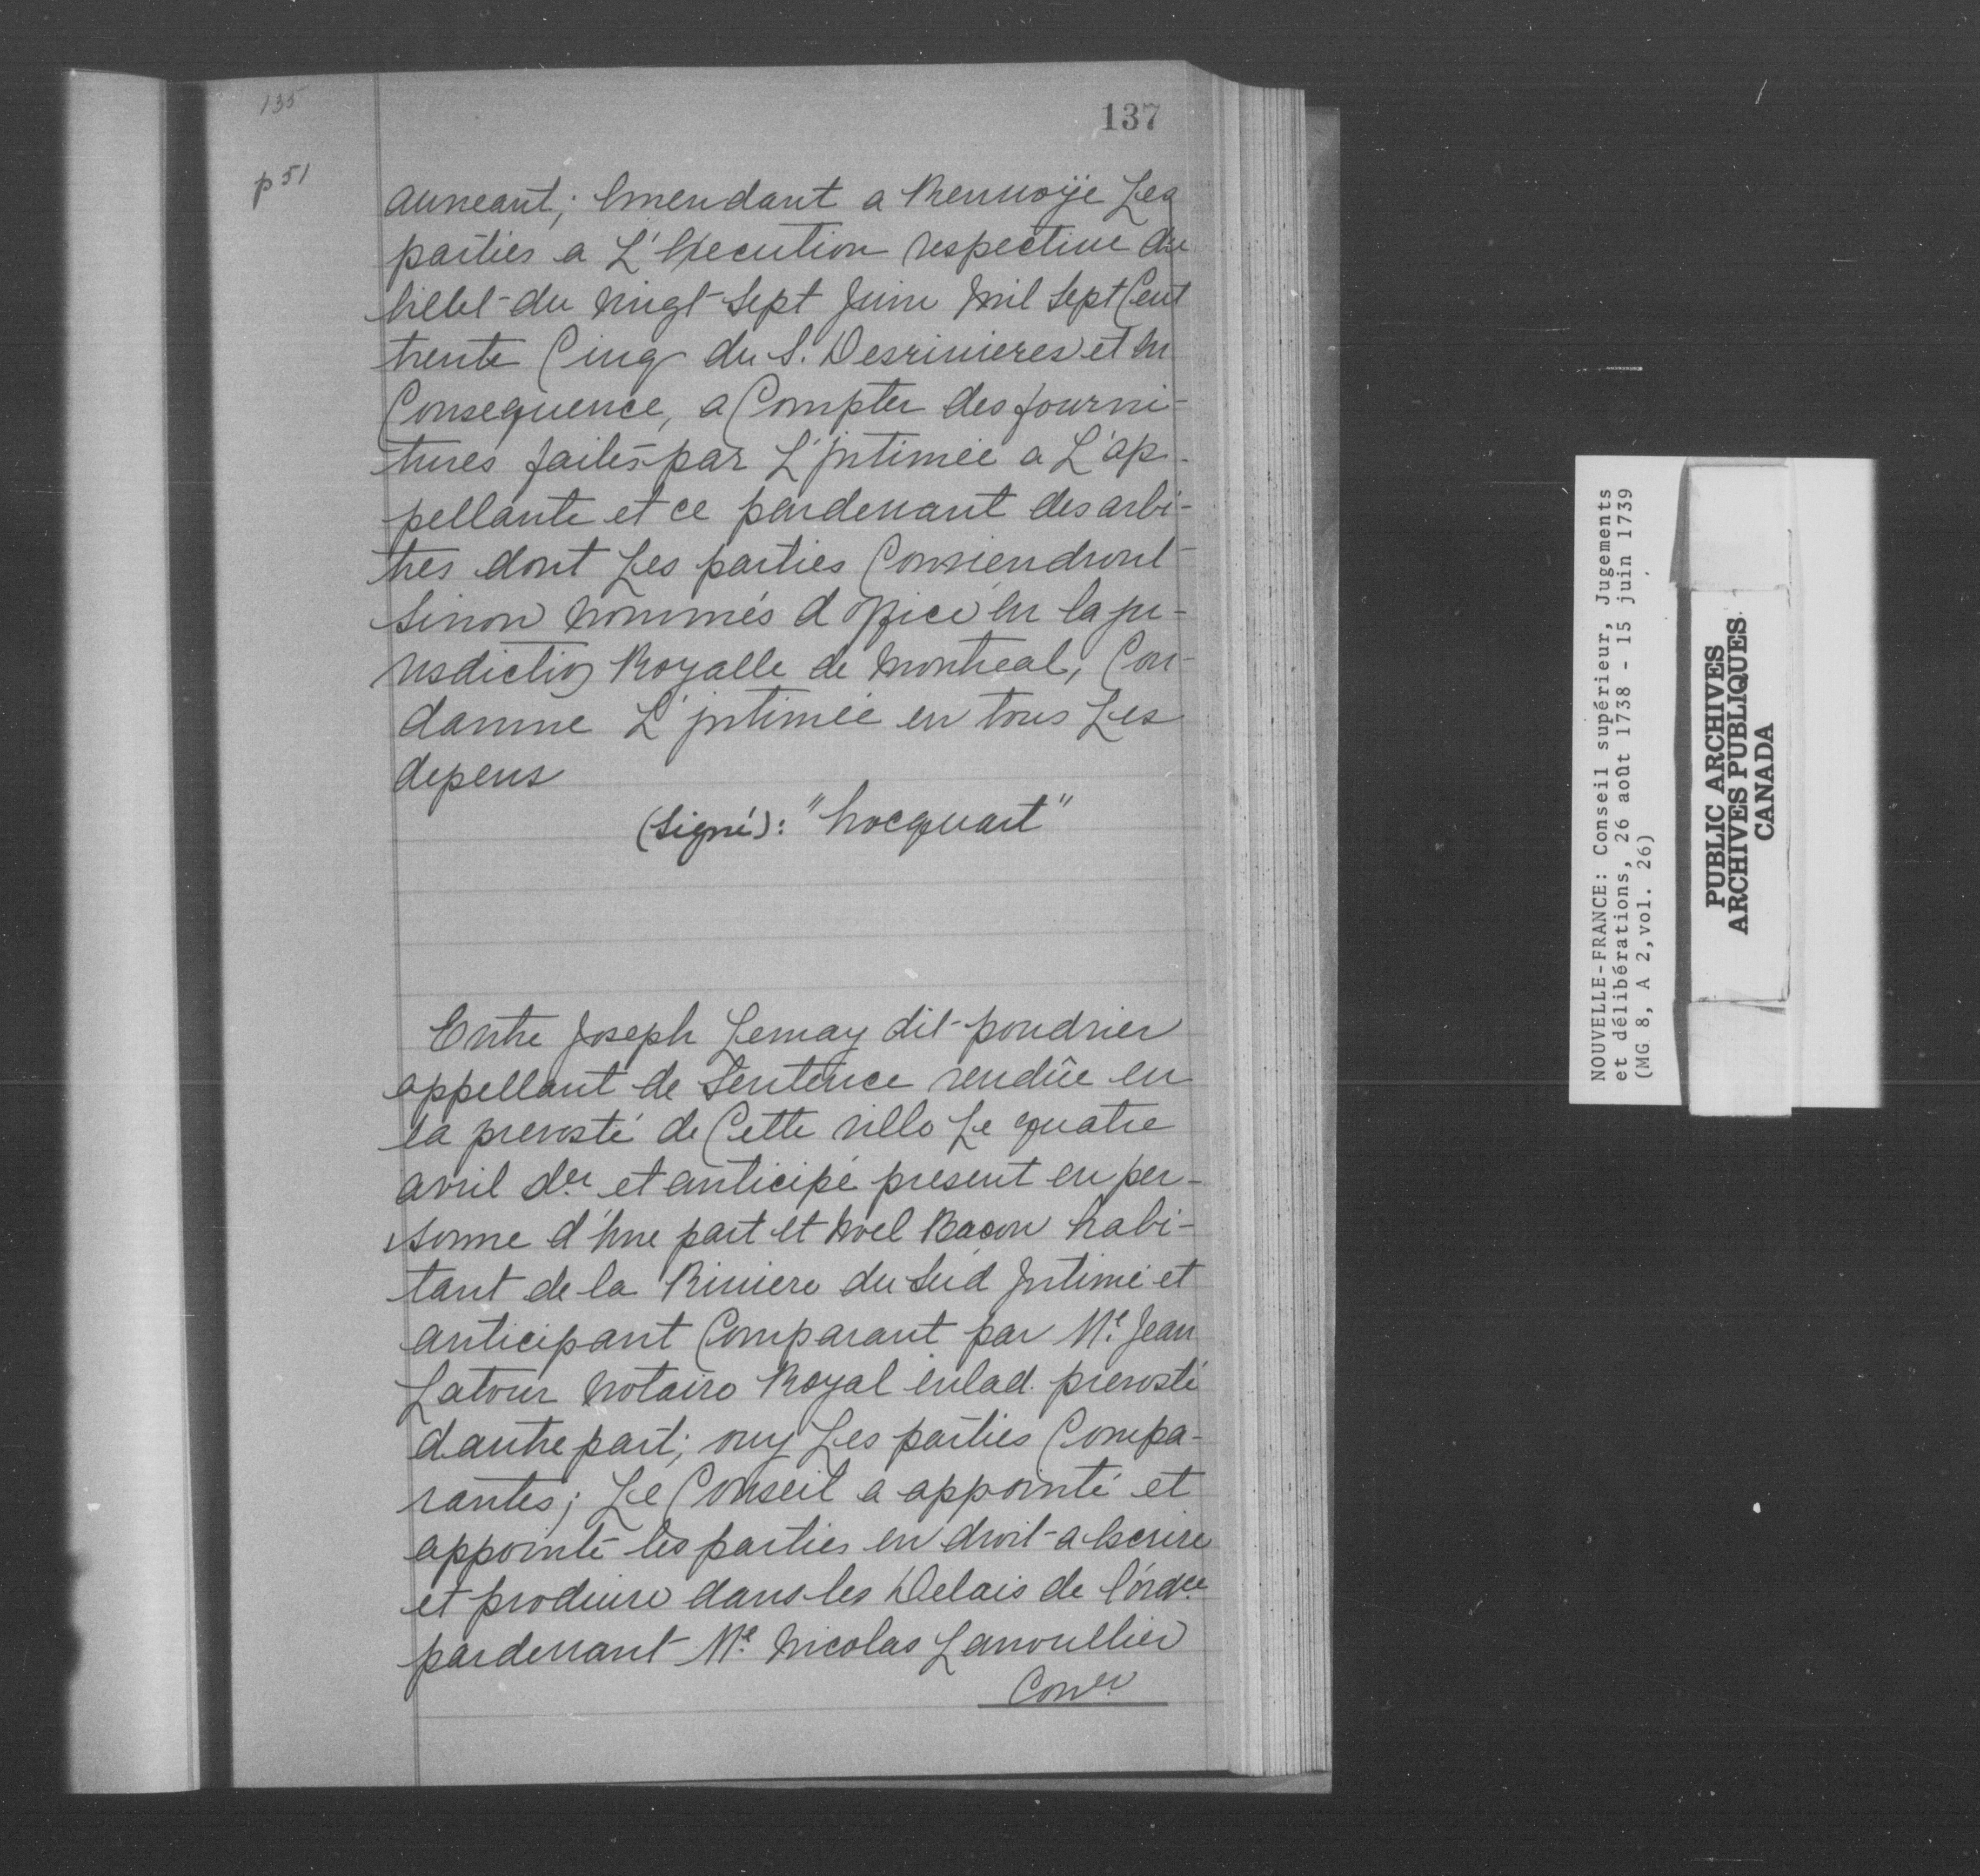 135
137
p 51
auneant; Emendant a Renvoÿe Les
parties a L'Execution respective du
billet du vingt Sept Juin Mil Sept Cent
trente Cinq du S. Desrivieres et En
Consequence, a Compter des fourni-
tures faites par L'jntimée a L'ap-
pellante et ce pardevant des arbi-
tres dont Les parties Conviendront
Sinon Nommés d'office en la ju-
risdiction Royalle de Montreal, Con-
damne L'jntimée en tous Les
depens
(Signé): "hocquart"
Entre Joseph Lemay dit poudrier
appellant de Sentence rendüe en
la prevosté de Cette ville Le quatre
avril der. et anticipé present en per-
sonne d'Une part et Noel Bacon habi-
tant de la Riviere du Sud Jntimé et
anticipant Comparant par Me. Jean
Latour Notaire Royal en lad. prevosté
dautre part; ouy Les parties Compa-
rantes; Le Conseil a appointé et
appointe les parties en droit a Escrire
et produire dans les Delais de l'ordce.
pardevant Me. Nicolas Lanoullier
Coner.
NOUVELLE-FRANCE: Conseil supérieur, Jugements
et délibérations, 26 août 1738 - 15 juin 1739
(MG 8, A 2, vol. 26)
PUBLIC ARCHIVES
ARCHIVES PUBLIQUES
CANADA